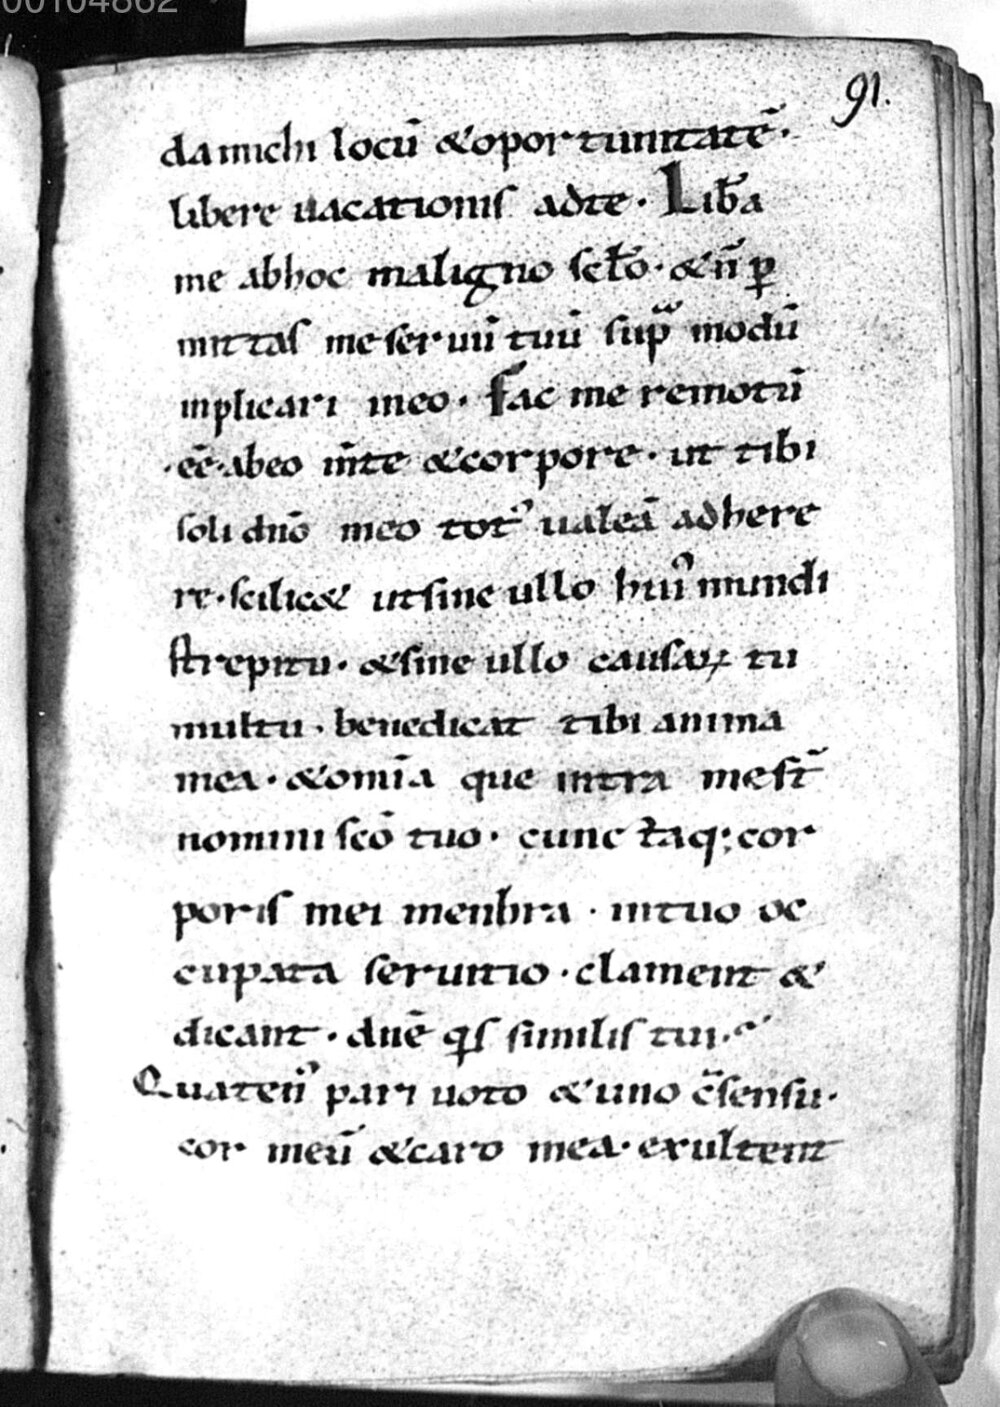 00104862
91.
da michi locū &oportunitatē·
libere uacationis adte· Lib̄a
me abhoc maligno sc̄lo· &n̄ ꝑ
mittas me seruū tuū supͣ modū
inplicari meo· fac me remotū
·eē· abeo m̄te &corpore· ut tibi
soli dn̄o meo totꝰ ualeā adhere
re· scilic& utsine ullo huiꝰ mundi
strepitu· &sine ullo causaꝝ tu
multu· benedicat tibi anima
mea· &om̄ia que intra me st̄
nomini sc̄o tuo· cunctaq; cor
poris mei menbra· intuo oc
cupata seruitio· clament &
dicant· dn̄e q̄s similis tui·
Quatenꝰ pari uoto &uno c̄sensu·
cor meū &caro mea· exultent